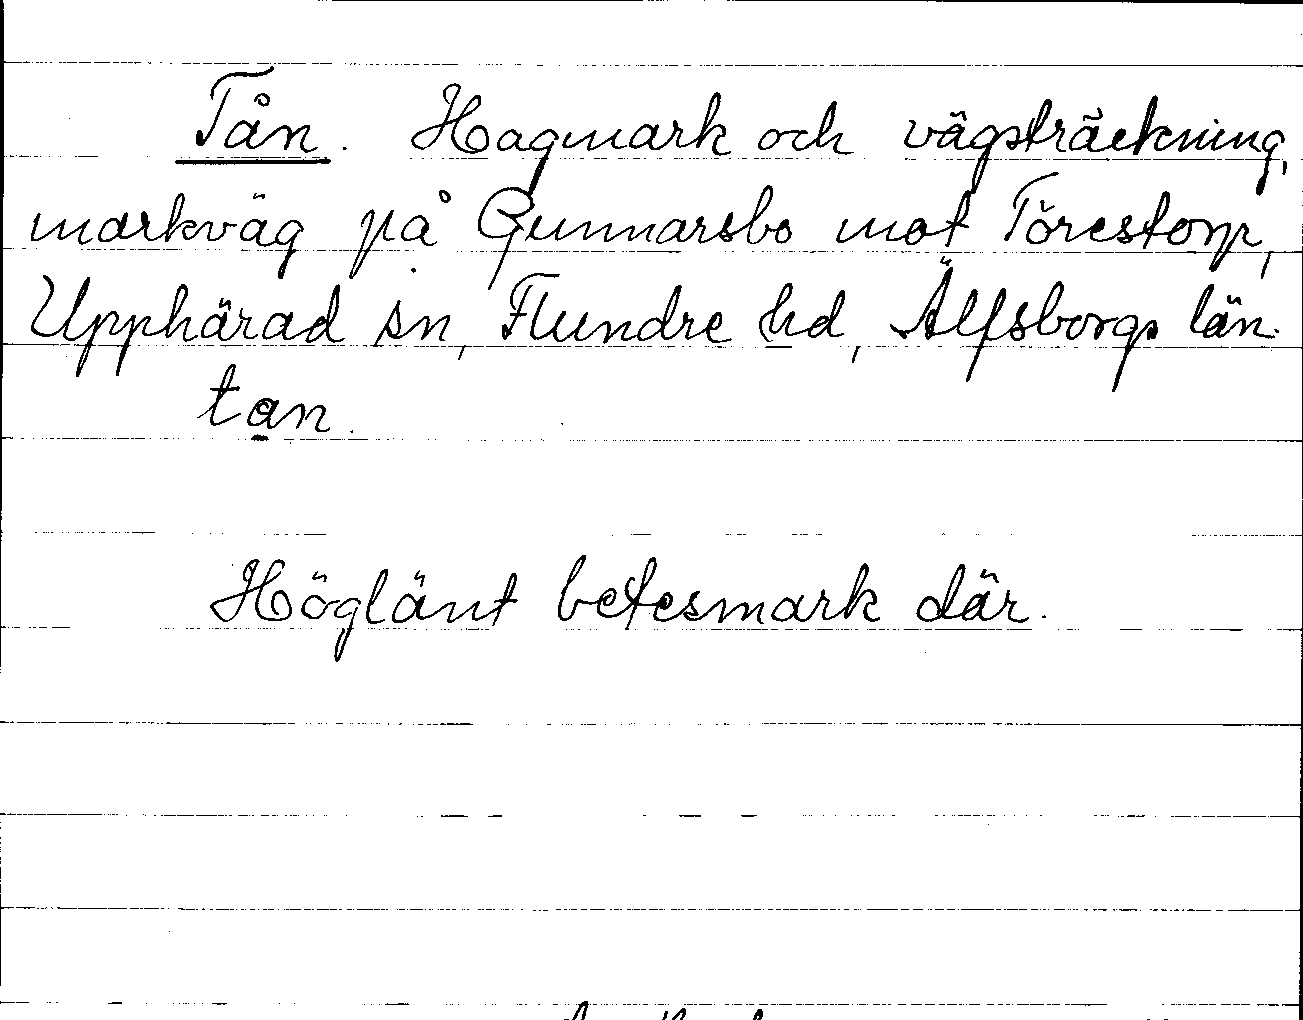 Tån. Hagmark och vägsträckning,
markväg på Gunnarsbo mot Törestorp,
Upphärad sn, Flundre hd, Älfsborgs län.
tan.
Höglänt betesmark där.